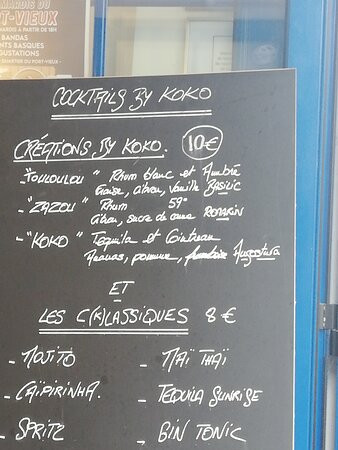 MARDIS DU
RT-VIEUX
MARDIS À PARTIR DE 18H
BANDAS
NTS BASQUES
GUSTATIONS
QUARTIER DU PORT-VIEUX
COCKTAILS BY KOKO
CRÉATIONS BY KOKO. 10€
- "TOULOULOU" Rhum blanc et Ambré
fraise, citron, vanille Basilic
- "ZAZOU" Rhum 59°
Citron, sucre de canne ROMARIN
- "KOKO" Tequila et Cointreau
Ananas, pomme, Angostura
ET
LES C(K)LASSIQUES 8€
- MOJITO
- MAÏ THAÏ
- CAÏPIRINHA.
- TEQUILA SUNRISE
- SPRITZ
- GIN TONIC